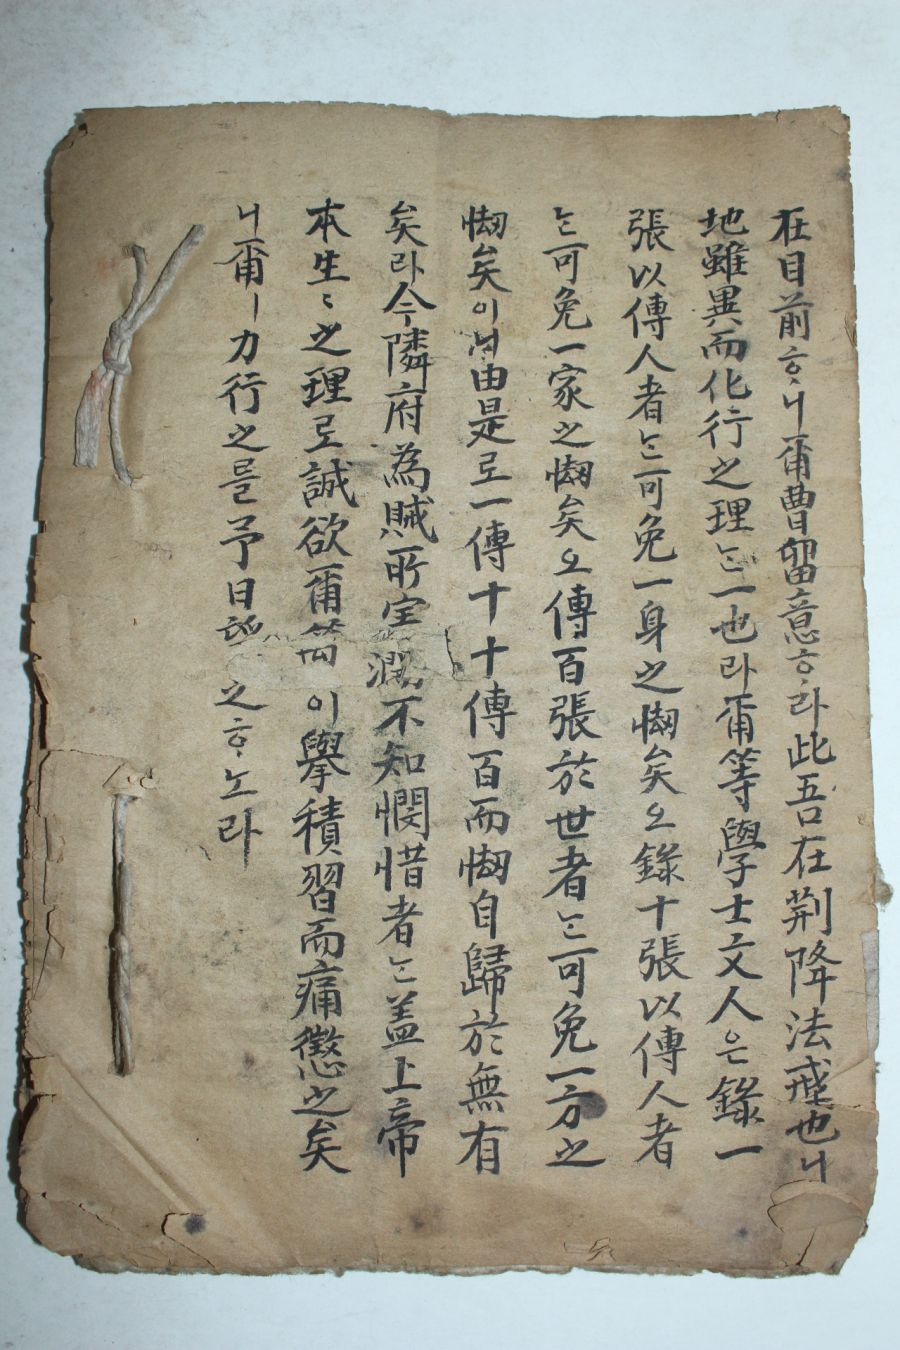 在目前ᄒᆞ니爾曹留意ᄒᆞ라此吾在荆降法戒也니
地雖異而化行之理ᄂᆞᆫ一也라爾等學士文人은錄一
張以傳人者ᄂᆞᆫ可免一身之㤼矣오錄十張以傳人者
ᄂᆞᆫ可免一家之㤼矣오傳百張於世者ᄂᆞᆫ可免一方之
㤼矣이니由是로一傳十十傳百而㤼自歸於無有
矣라今隣府為賊所不知憫惜者ᄂᆞᆫ盖上帝
本生〻之理로誠欲爾等이擧積習而痛懲之矣
니爾ㅣ力行之를予日望之ᄒᆞ노라